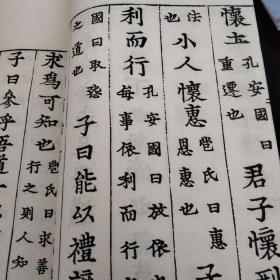 懷土 孔安國曰重遷也 君子懷
法也 小人懷惠 苞氏曰惠恩惠也
利而行 孔安國曰放依也每事依利而行
國曰取怨之道也 子曰能以禮
求爲可知也 苞氏曰求善行之則人知
子曰參乎吾道一